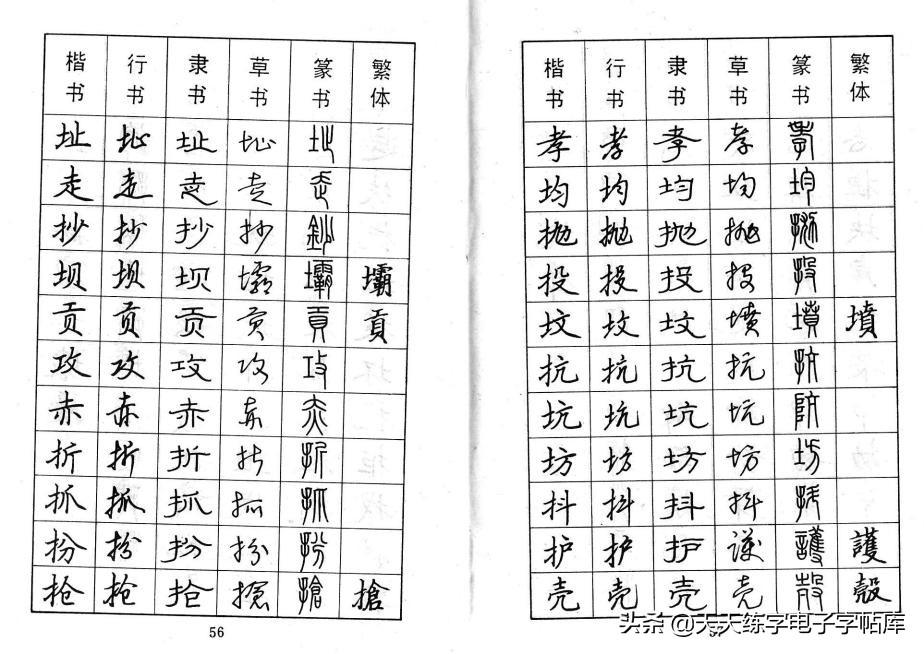 楷书 行书 隶书 草书 篆书 繁体
址 址 址 址 址
走 走 走 走 走
抄 抄 抄 抄 鈔
坝 坝 坝 壩 壩 壩
贡 贡 贡 贡 貢 貢
攻 攻 攻 攻 攻
赤 赤 赤 赤 赤
折 折 折 折 折
抓 抓 抓 抓 抓
扮 扮 扮 扮 扮
抢 抢 抢 搶 搶 搶
56
楷书 行书 隶书 草书 篆书 繁体
孝 孝 孝 孝 孝
均 均 均 均 均
抛 抛 抛 抛 抛
投 投 投 投 投
坟 坟 坟 墳 墳 墳
抗 抗 抗 抗 抗
坑 坑 坑 坑 阬
坊 坊 坊 坊 坊
抖 抖 抖 抖
护 护 护 護 護 護
壳 壳 壳 壳 殼
头条 @天天练字电子字帖库